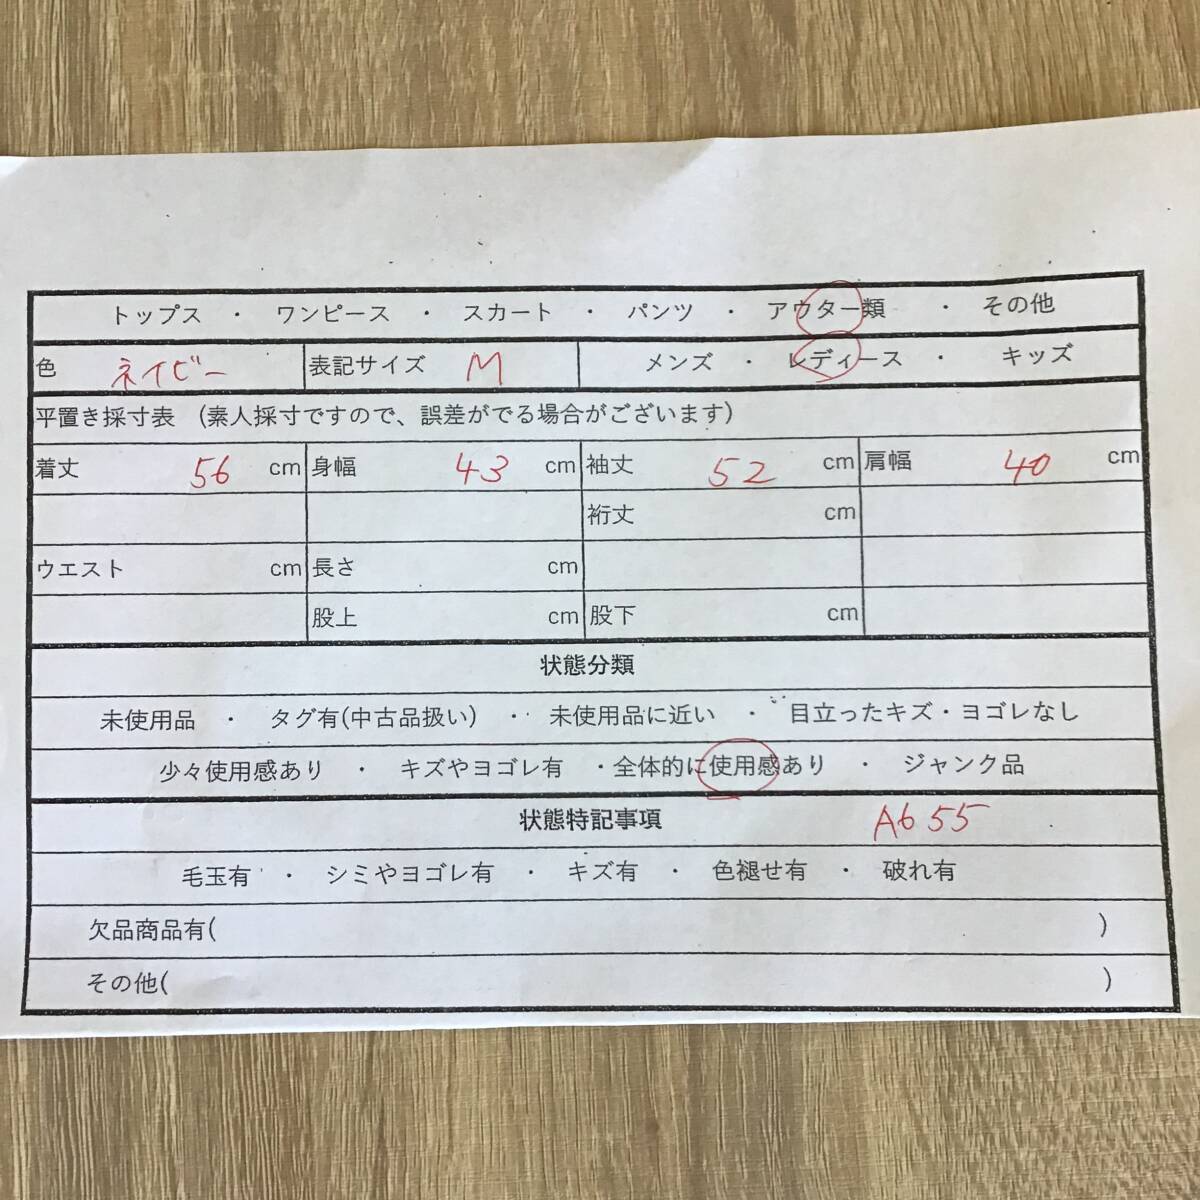 トップス ・ ワンピース ・ スカート ・ パンツ ・ アウター類 ・ その他
色 ネイビー 表記サイズ M メンズ ・ レディース ・ キッズ
平置き採寸表 (素人採寸ですので、誤差がでる場合がございます)
着丈 56 cm 身幅 43 cm 袖丈 52 cm 肩幅 40 cm
裄丈 cm
ウエスト cm 長さ cm
股上 cm 股下 cm
状態分類
未使用品 ・ タグ有(中古品扱い) ・ 未使用品に近い ・ 目立ったキズ・ヨゴレなし
少々使用感あり ・ キズやヨゴレ有 ・全体的に使用感あり ・ ジャンク品
状態特記事項 A655
毛玉有 ・ シミやヨゴレ有 ・ キズ有 ・ 色褪せ有 ・ 破れ有
欠品商品有( )
その他( )